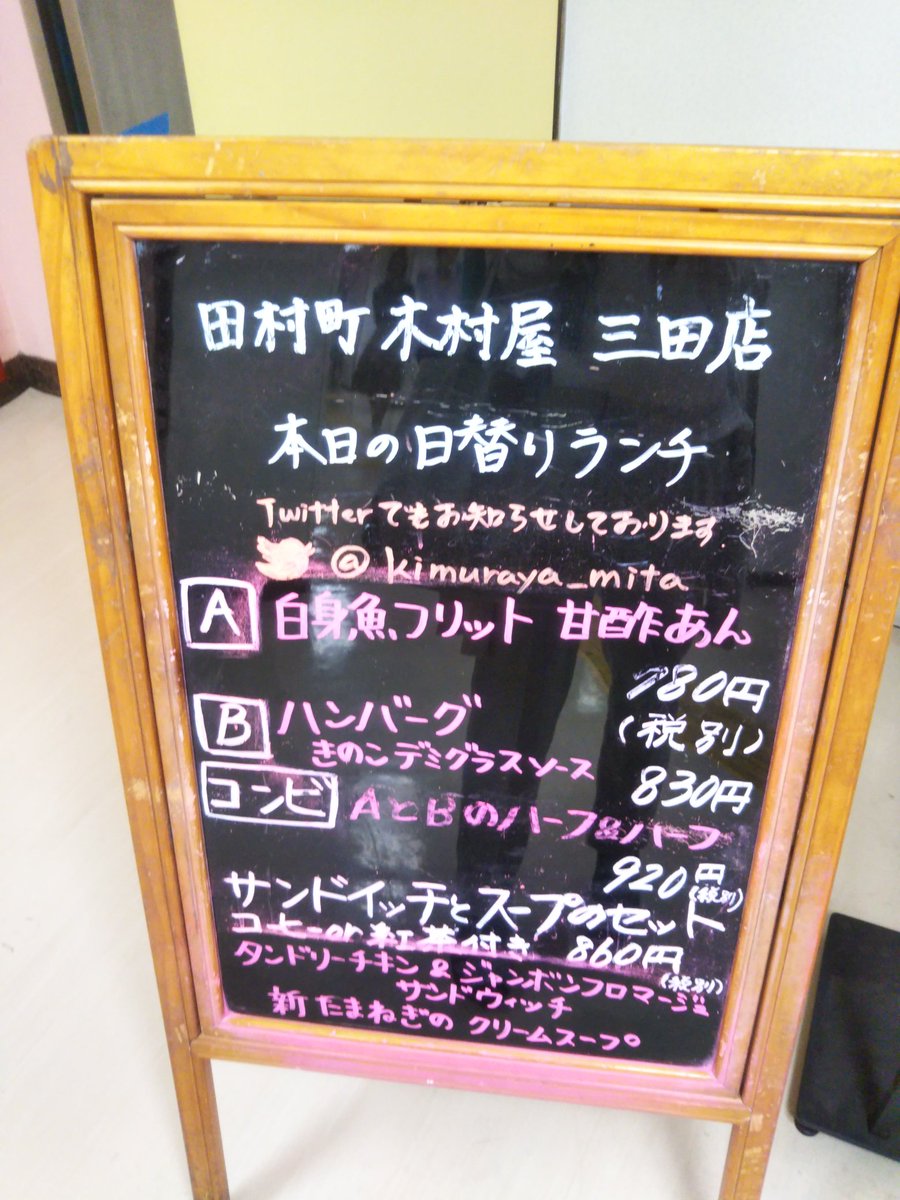 田村町 木村屋 三田店
本日の日替りランチ
Twitterでもお知らせしております
@kimuraya_mita
A 白身魚フリット 甘酢あん
780円
(税別)
B ハンバーグ
きのこデミグラスソース
830円
コンビ AとBのハーフ&ハーフ
920円(税別)
サンドイッチとスープのセット
コーヒーor紅茶付き 860円
(税別)
タンドリーチキン & ジャンボンフロマージュ
サンドウィッチ
新たまねぎの クリームスープ